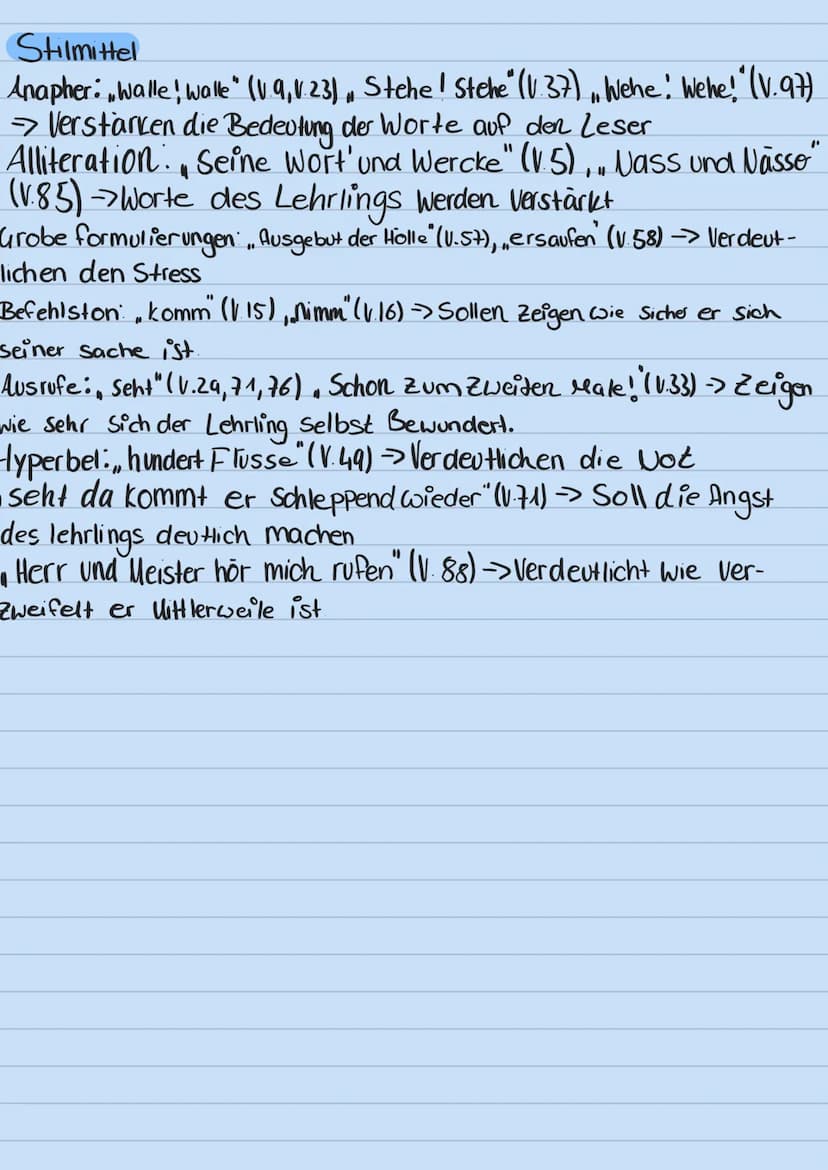 Stilmittel
Anapher: „Walle! walle" (V.9, V.23) „Stehe! Stehe" (V.37) „Wehe! Wehe!" (V.97)
-> Verstärken die Bedeutung der Worte auf den Leser
Alliteration: „Seine Wort' und Wercke" (V.5), „Nass und Nässe"
(V.85) -> Worte des Lehrlings werden verstärkt
Grobe formulierungen: „Ausgebut der Hölle" (V.57), „ersaufen" (V.58) -> Verdeut-
lichen den Stress
Befehlston: „komm" (V.15), „Nimm" (V.16) -> Sollen zeigen wie sicher er sich
seiner sache ist.
Ausrufe: „Seht" (V.29, 71, 76) „Schon zum zweiten Male!" (V.33) -> Zeigen
wie sehr sich der Lehrling selbst Bewundert.
Hyperbel: „hundert Flüsse" (V.49) -> Verdeutlichen die Not
„seht da kommt er Schleppend wieder" (V.71) -> Soll die Angst
des lehrlings deutlich machen
„Herr und Meister hör mich rufen" (V.88) -> Verdeutlicht wie Ver-
zweifelt er Mittlerweile ist